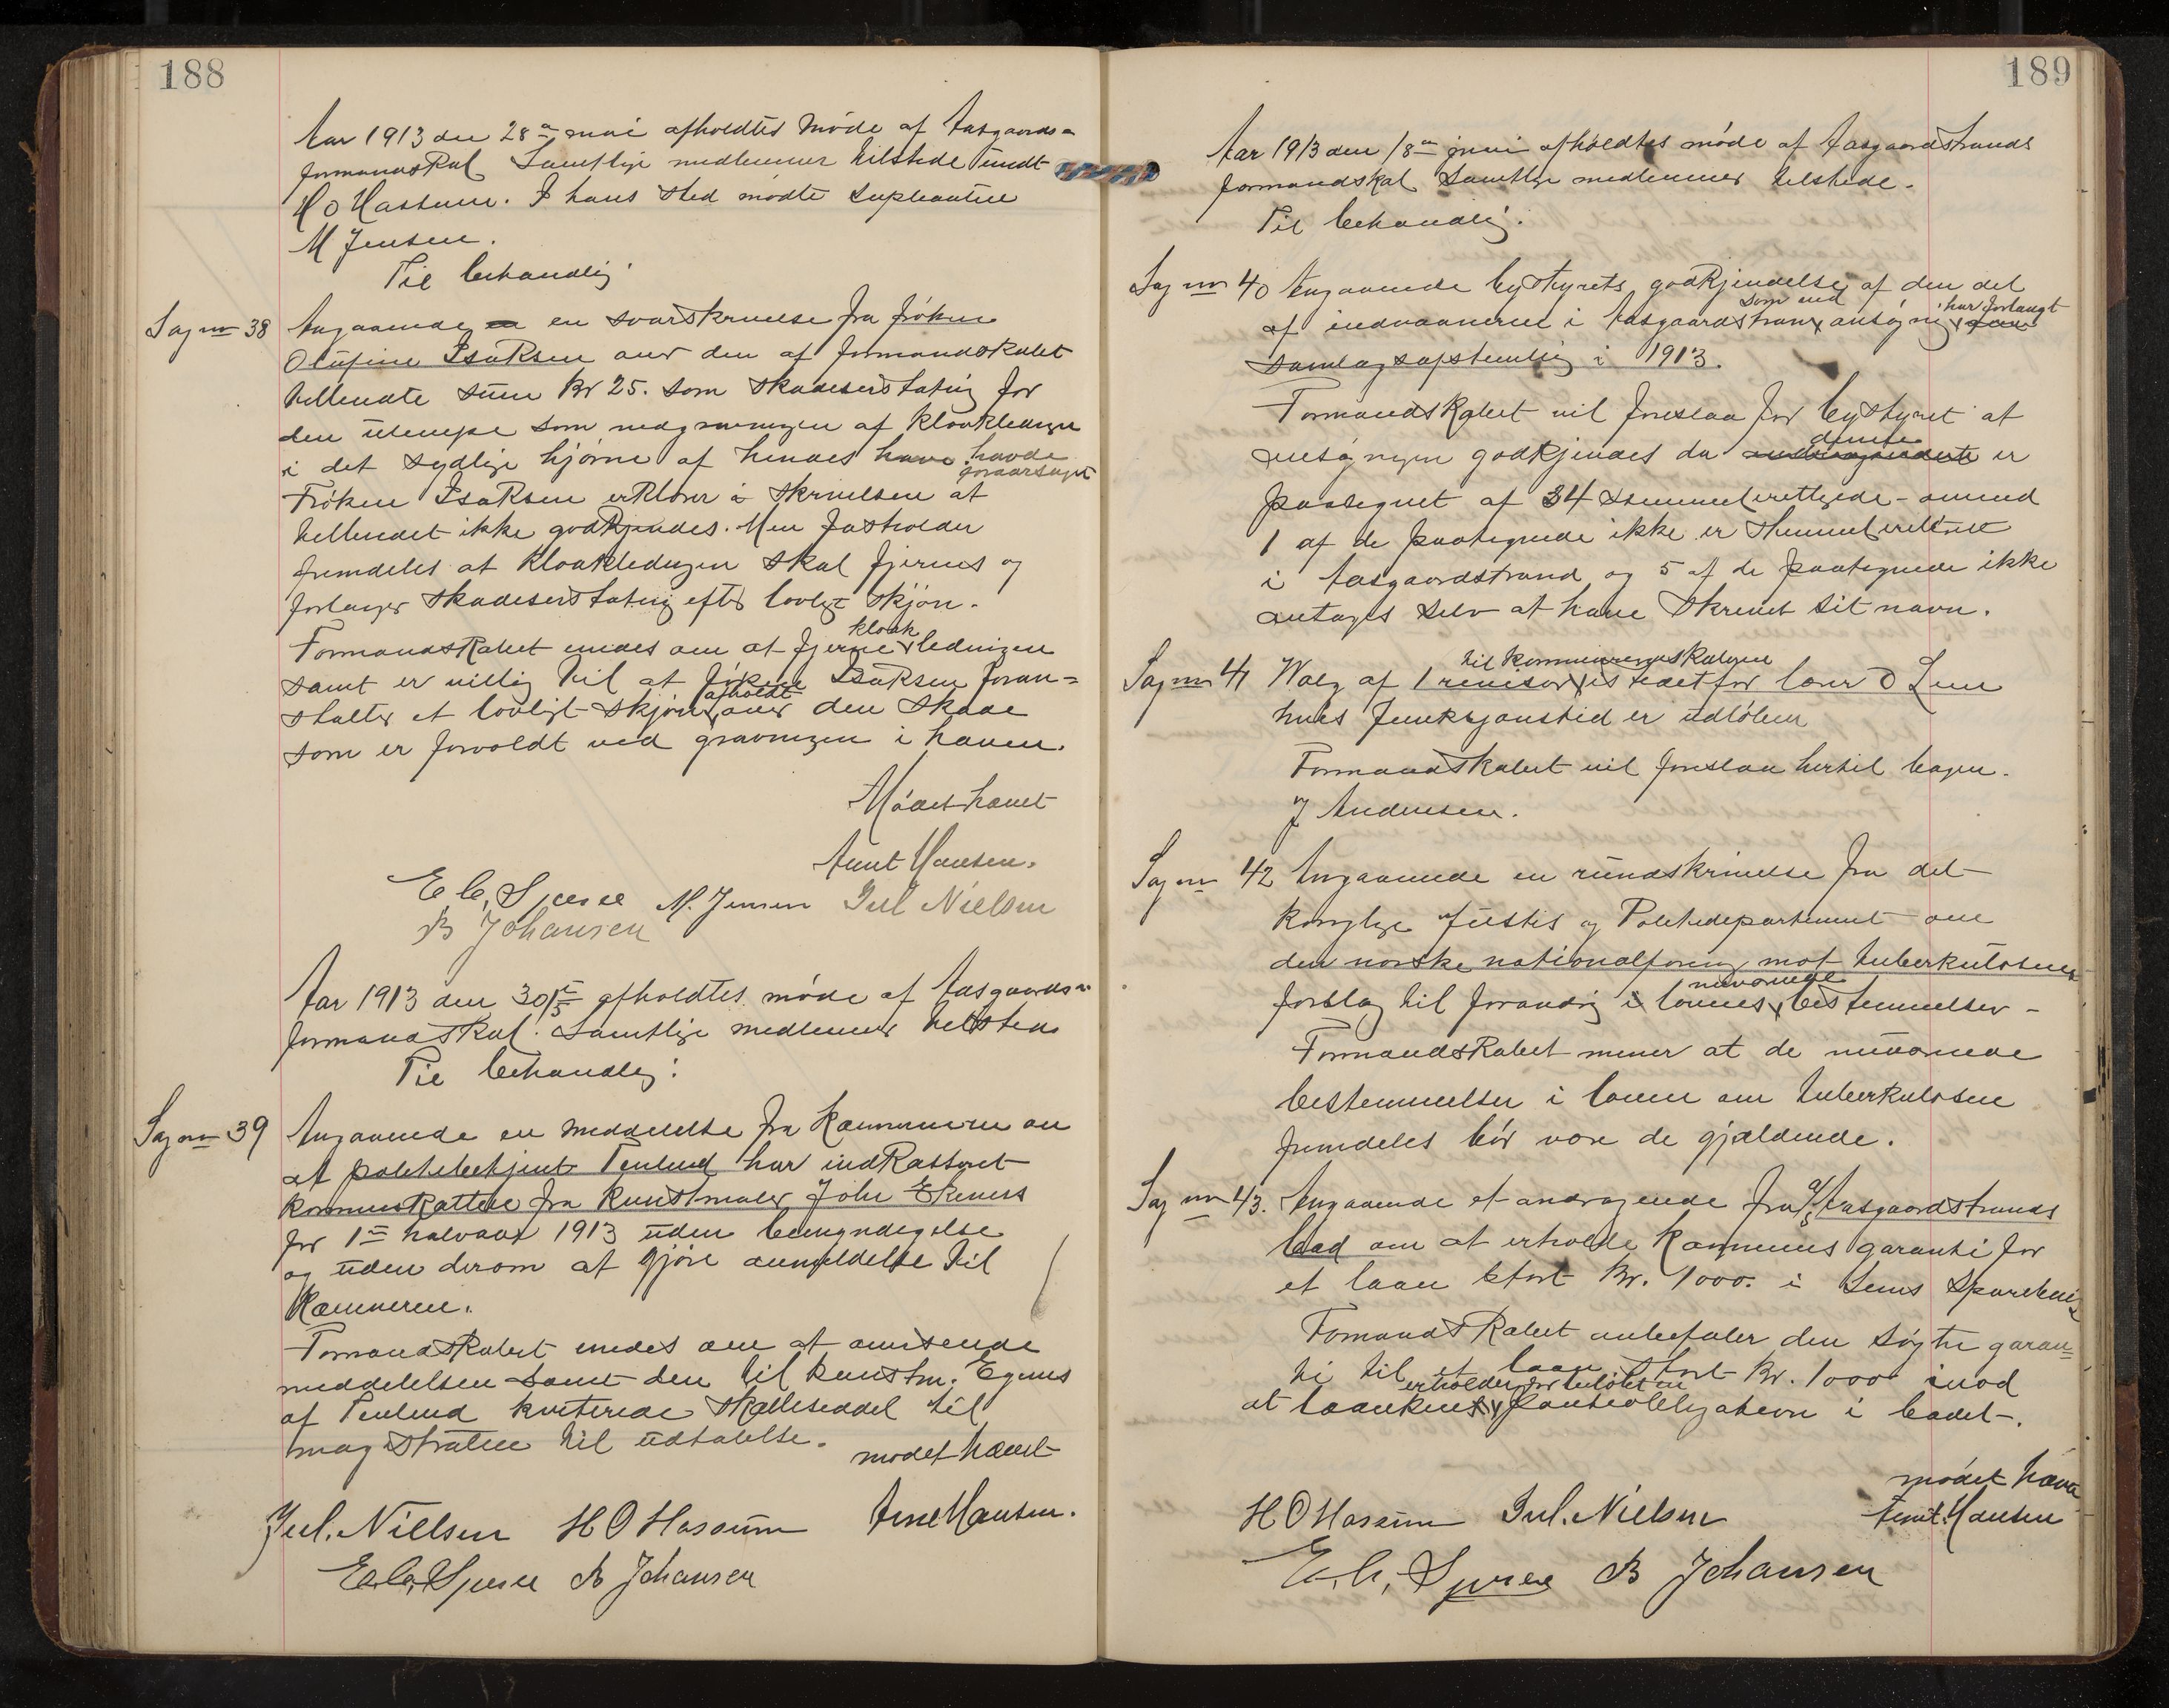 188
Aar 1913 den 28de mai afholdtes møde af Aasgaards-
formandskab Samtlige medlemmer tilstede undt
H O Hassum. I hans sted mødte supleanten
M Jensen.
Til behandlig:
Sag nr 38 Angaaende en svarskrivelse fra frøken
Olufine Isaksen over den af formandskabet
tilbudte sum Kr 25. som skadeserstatnig for
den ulempe som nedgravningen af kloakledngen
i det sydlige hjørne af hendes have havde
foraarsaget
Frøken Isaksen erklærer i skrivelsen at
tilbudet ikke godkjendes. Men fastholder
fremdeles at kloakledngen skal fjernes og
forlanger skadeserstatnig efter lovligt skjøn.
Formandskabet enedes om at fjerne kloak ledningen
samt er villig til at frøken Isaksen foran=
stalter et lovligt skjøn afholdt over den skade
som er forvoldt ved gravningen i haven.
Mødet hævet
Arnt Hansen.
E C. Sperre M. Jensen Jul Nielsen
B Johansen
Aar 1913 den 30te/5 afholdtes møde af Aasgaards-
formandskab. Samtlige medlemmer tilstede
Til behandlig:
Sag nr 39 Angaaende en meddelelse fra Kæmneren om
at politibetjent Tenlund har indkasseret
kommuneskatten fra kunstmaler John Ekenes
for 1ste halvaar 1913 uden bemyndigelse
og uden derom at gjøre anmeldelse til
Kæmneren.
Formandskabet enedes om at oversende
meddelelsen samt den til kunstm. Egenes
af Tenlund kviterede skatteseddel til
magistraten til udtalelse.
mødet hævet
Jul. Nielsen H O Hassum Arnt Hansen.
E. C. Sperre B Johansen
189
Aar 1913 den 18de juni afholdtes møde af Aasgaardstrands
formandskab Samtlige medlemmer tilstede.
Til behandlig:
Sag nr 40 Angaaende bystyrets godkjendelse af den del
af indvaanerne i Aasgaardstrand som ved ansøgnig har forlangt
samlagsafstemnig i 1913.
Formandskabet vil foreslaa for bystyret at
ansøgningen godkjendes da denne er
paategnet af 34 stemmeberettigede - omend
1 af de paategnede ikke er stemmeberettiget
i Aasgaardstrand og 5 af de paategnede ikke
antages selv at have skrevet sit navn.
Sag nr 41 Valg af 1 revisor til kommuneregnskaberne istedetfor lærer O Lun
hvis funksjonstid er udløben
Formandskabet vil foreslaa hertil bager
J Andersen.
Sag nr 42 Angaaende en rundskrivelse fra det
kongelige Justis og Politidepartement om
den norske nationalforenig mot tuberkulosens
forslag til forandrig i lovens nuværende bestemmelser -
Formandskabet mener at de nuværende
bestemmelser i loven om tuberkulosen
fremdeles bør være de gjældende.
Sag nr 43. Angaaende et andragende fra A/S Aasgaardstrands
bad om at erholde Kommunens garanti for
et laan stort Kr. 1000. i Sems Sparebank
Formandskabet anbefaler den søgte garan=
ti til et laan stort Kr. 1000 imod
at banken erholder for beløbet en pantobligation i badet.
mødet hævet
H O Hassum Jul. Nielsen Arnt. Hansen
E. C. Sperre B Johansen